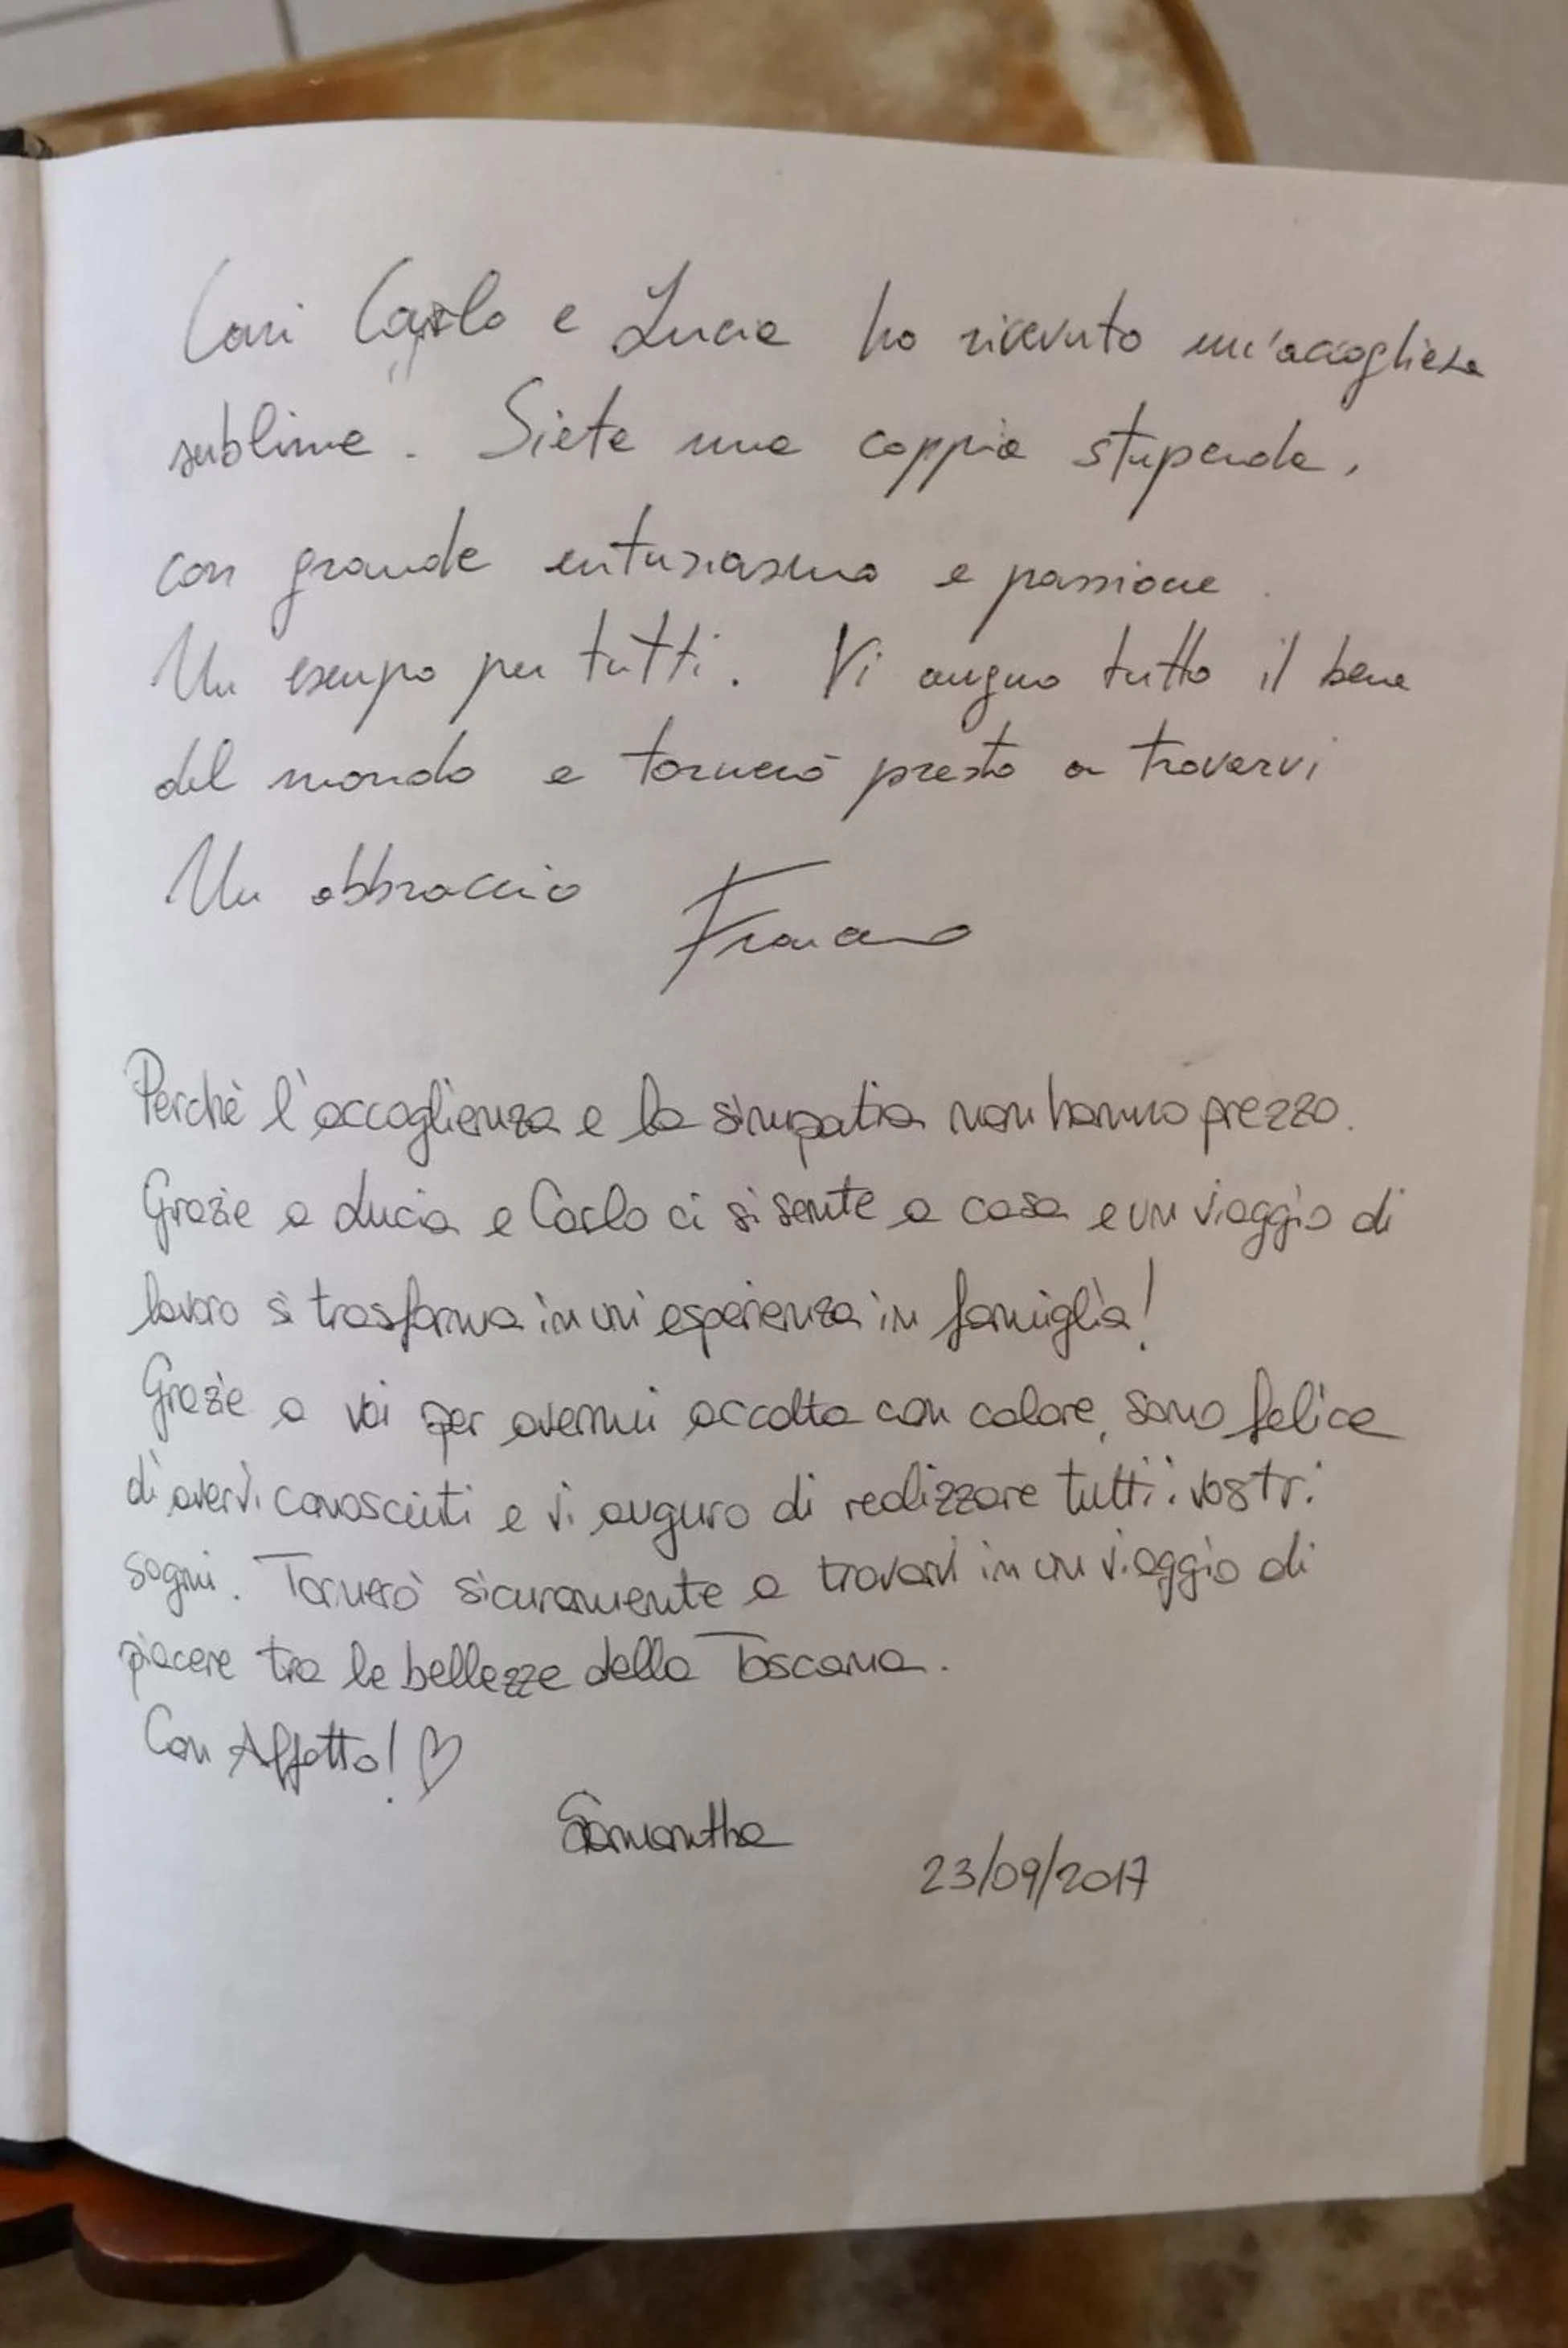 Cari Carlo e Lucia ho ricevuto un'accoglieza
sublime. Siete una coppia stupenda,
con grande entusiasmo e passione.
Un esempo per tutti. Vi auguro tutto il bene
del mondo e tornerò presto a trovarvi
Un abbraccio
Perchè l'accoglienza e la simpatia non hanno prezzo.
Grazie a Lucia e Carlo ci si sente a casa e un viaggio di
lavoro si trasforma in un'esperienza in famiglia!
Grazie a voi per avermi accolta con calore, sono felice
di avervi conosciuti e vi auguro di realizzare tutti i vostri
sogni. Tornerò sicuramente a trovarvi in un viaggio di
piacere tra le bellezze della Toscana.
Con Affetto! ♡
Samantha
23/09/2017